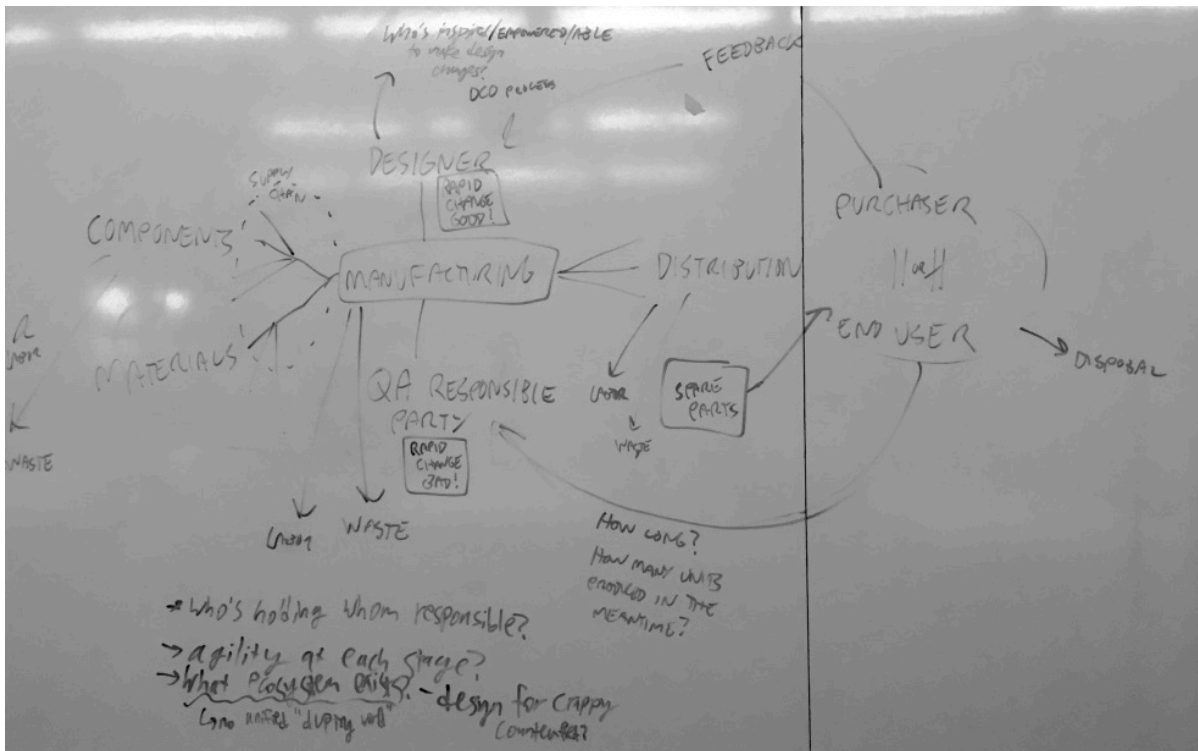 WHO'S INSPIRED/EMPOWERED/ABLE
to make design
changes?
DCO PROCESS
FEEDBACK
DESIGNER
RAPID
CHANGE
GOOD!
SUPPLY
CHAIN
COMPONENTS
MANUFACTIRING
DISTRIBUTION
PURCHASER
||or||
END USER
DISPOSAL
MATERIALS
LABOR
WASTE
QA RESPONSIBLE
PARTY
RAPID
CHANGE
BAD!
LABOR
WASTE
SPARE
PARTS
LABOR
WASTE
HOW LONG?
HOW MANY UNITS
PRODUCED IN THE
MEANTIME?
→ Who's holding whom responsible?
→ agility at each stage?
→ What ecosystem exists? - design for crappy
counterfeit?
↳ no unified